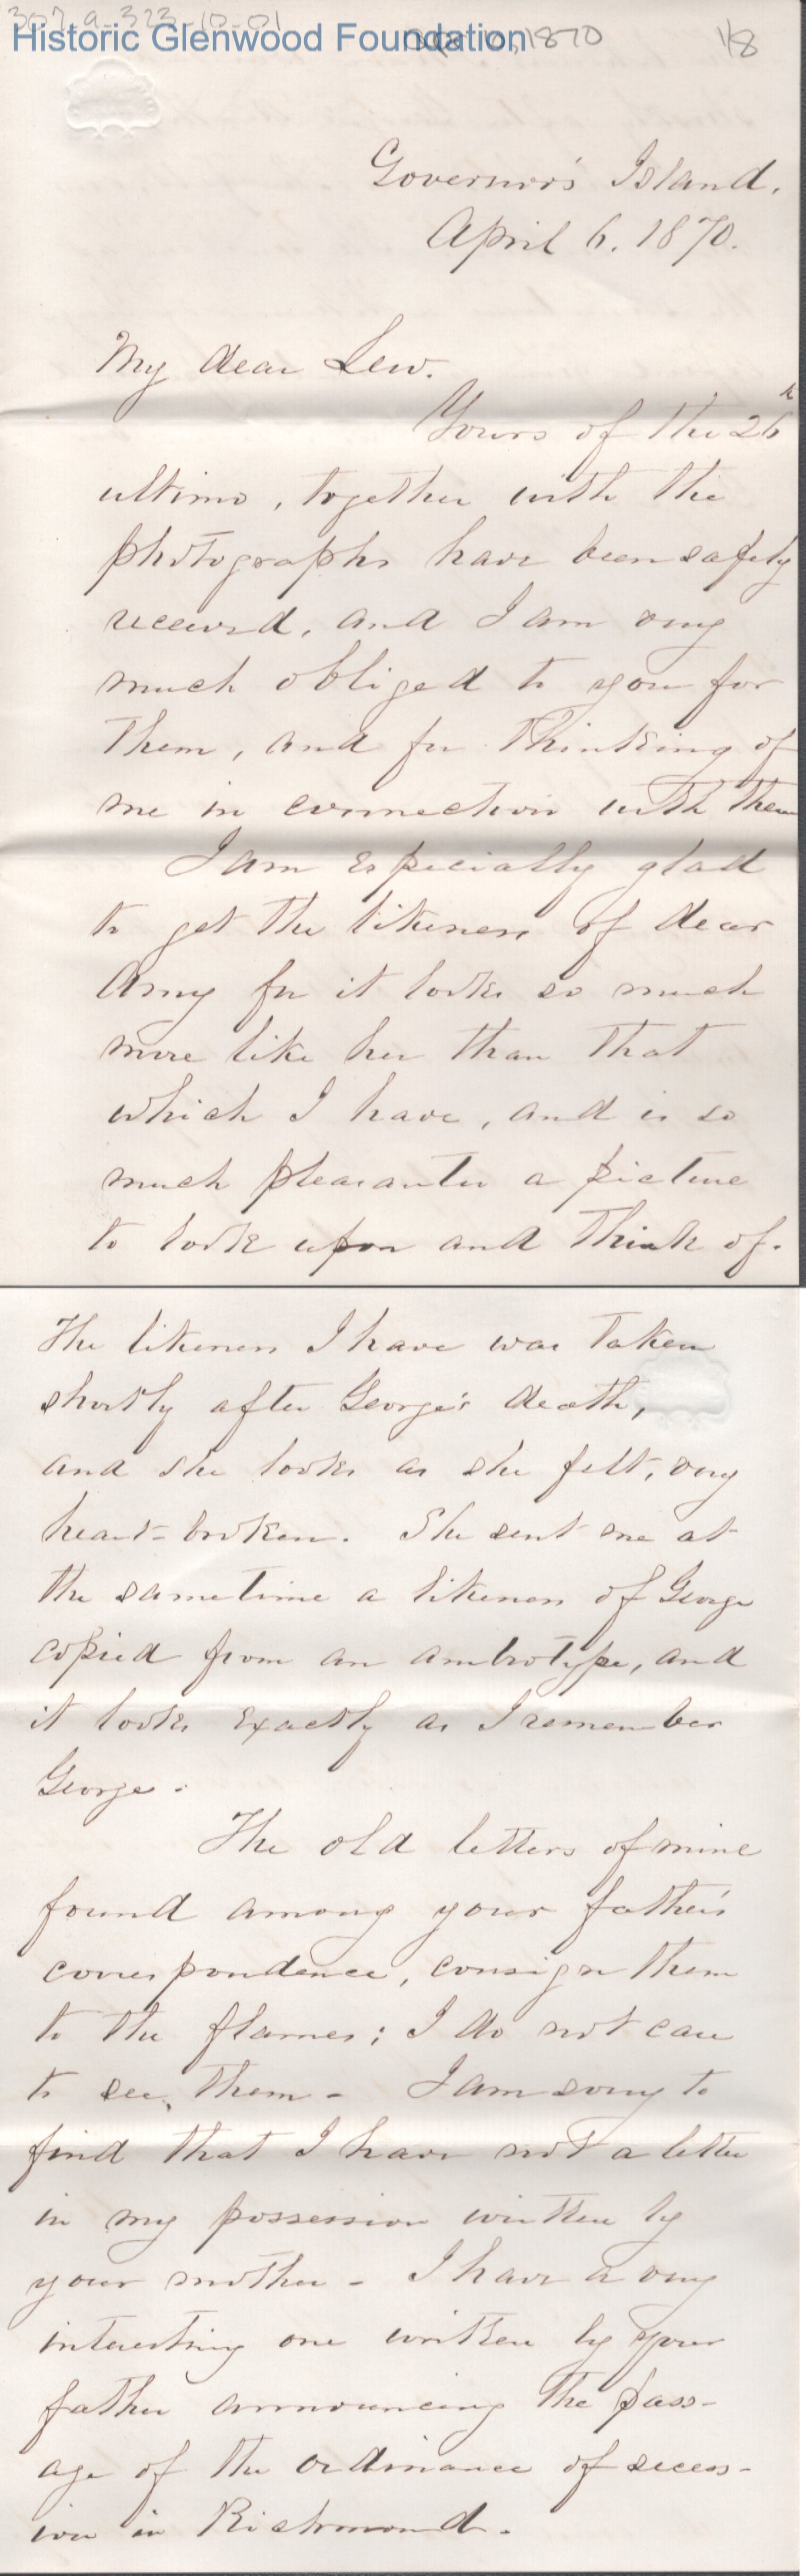 307 a-323-10-01
Historic Glenwood Foundation
1870
1/8
Governor's Island,
April 6. 1870.
My dear Lew.
Yours of the 26h
ultimo, together with the
photographs have been safely
received, and I am very
much obliged to you for
them, and for thinking of
me in connection with them
I am especially glad
to get the likeness of dear
Amy for it looks so much
more like her than that
which I have, and is so
much pleasanter a picture
to look upon and think of.
The likeness I have was taken
shortly after George's death,
and she looks as she felt, very
heart-broken. She sent me at
the same time a likeness of George
copied from an ambrotype, and
it looks exactly as I remember
George.
The old letters of mine
found among your father's
correspondence, consign them
to the flames; I do not care
to see them - I am sorry to
find that I have not a letter
in my possession written by
your mother - I have a very
interesting one written by your
father announcing the pass-
age of the ordinance of secess-
ion in Richmond.